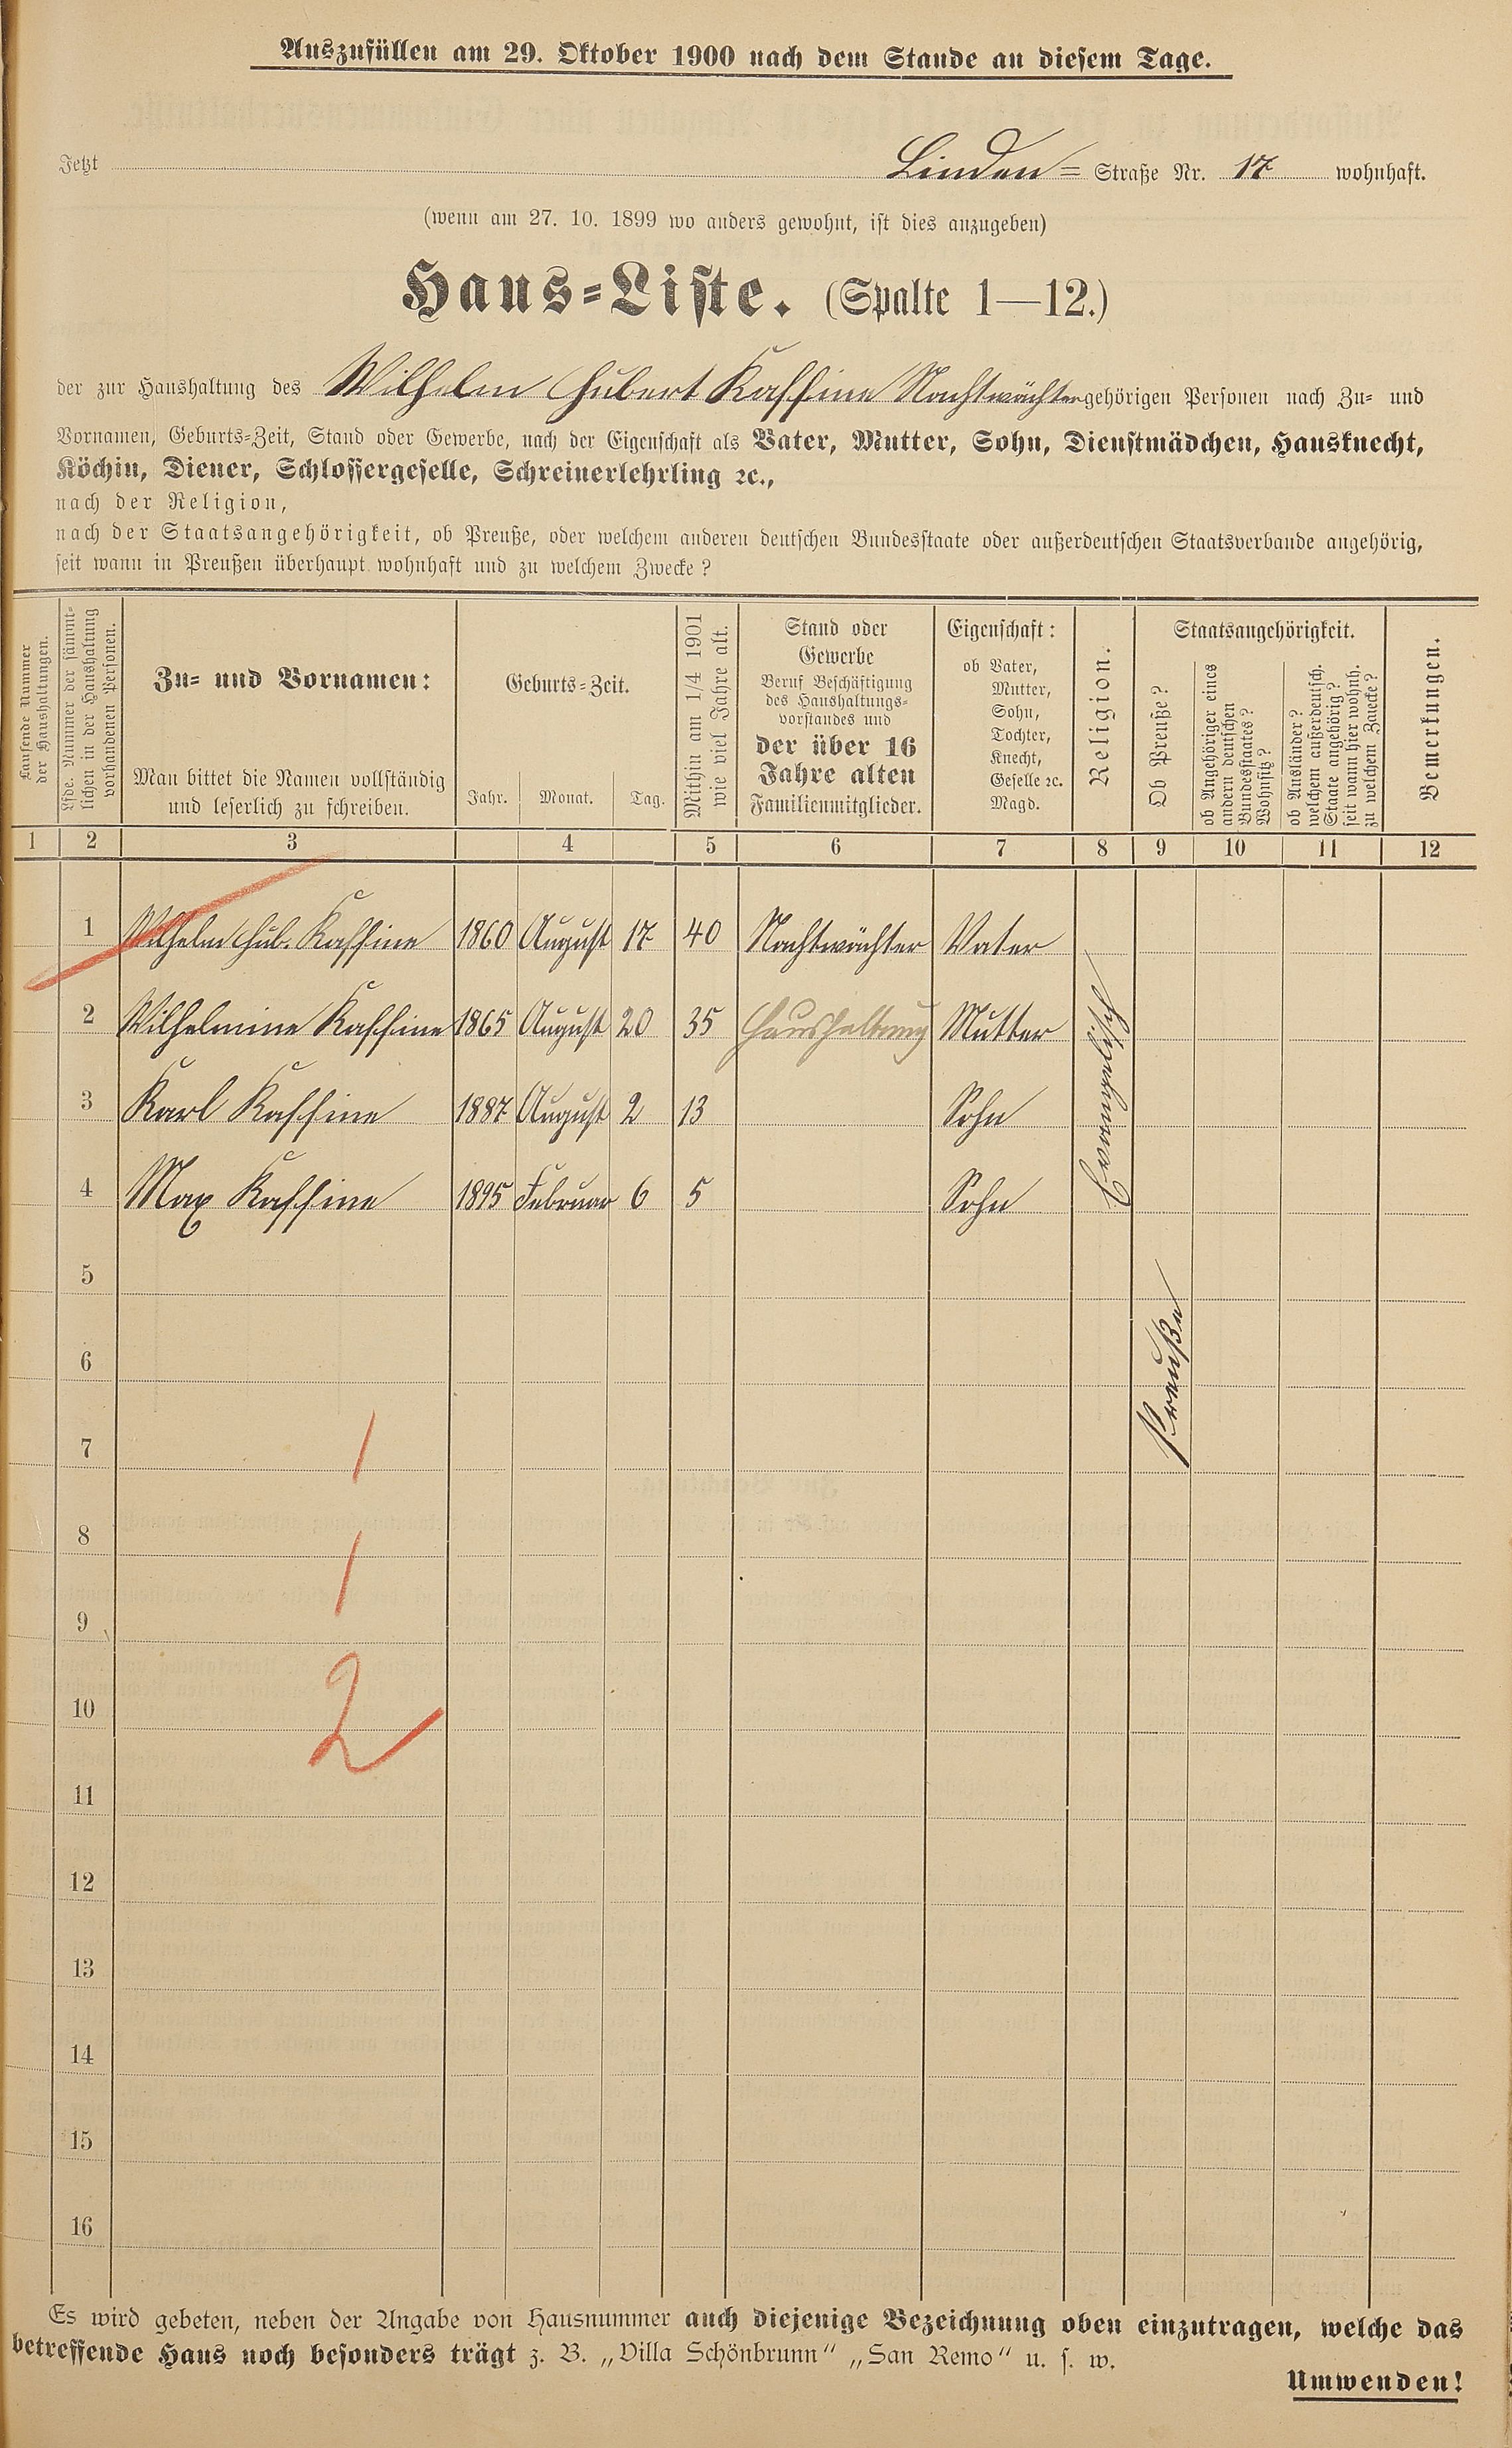 Auszufüllen am 29. Oktober 1900 nach dem Stande an diesem Tage.
Jetzt Linden= Straße Nr. 17 wohnhaft.
(wenn am 27. 10. 1899 wo anders gewohnt, ist dies anzugeben)
Haus=Liste. (Spalte 1—12.)
der zur Haushaltung des Wilhelm Hubert Kaffine Nachtwächter gehörigen Personen nach Zu= und
Vornamen, Geburts=Zeit, Stand oder Gewerbe, nach der Eigenschaft als Vater, Mutter, Sohn, Dienstmädchen, Hausknecht,
Köchin, Diener, Schlossergeselle, Schreinerlehrling ꝛc.,
nach der Religion,
nach der Staatsangehörigkeit, ob Preuße, oder welchem anderen deutschen Bundesstaate oder außerdeutschen Staatsverbande angehörig,
seit wann in Preußen überhaupt wohnhaft und zu welchem Zwecke?
Laufende Nummer
der Haushaltungen.
Lfde. Nummer der sämmt=
lichen in der Haushaltung
vorhandenen Personen.
Zu= und Vornamen:
Man bittet die Namen vollständig
und leserlich zu schreiben.
Geburts=Zeit.
Jahr. Monat. Tag.
Mithin am 1/4 1901
wie viel Jahre alt.
Stand oder
Gewerbe
Beruf Beschäftigung
des Haushaltungs=
vorstandes und
der über 16
Jahre alten
Familienmitglieder.
Eigenschaft:
ob Vater,
Mutter,
Sohn,
Tochter,
Knecht,
Geselle ꝛc.
Magd.
Religion.
Staatsangehörigkeit.
Ob Preuße?
ob Angehöriger eines
andern deutschen
Bundesstaates?
Wohnsitz?
ob Ausländer?
welchem außerdeutsch.
Staate angehörig?
seit wann hier wohnh.
zu welchem Zwecke?
Bemerkungen.
1 2 3 4 5 6 7 8 9 10 11 12
1 Wilhelm Hub. Kaffine 1860 August 17 40 Nachtwächter Vater
2 Wilhelmine Kaffine 1865 August 20 35 Haushaltung Mutter
3 Karl Kaffine 1887 August 2 13 Sohn
4 Max Kaffine 1895 Februar 6 5 Sohn
Evangelisch
5
Preuße
6
7 1
8 1
9
10 2
11
12
13
14
15
16
Es wird gebeten, neben der Angabe von Hausnummer auch diejenige Bezeichnung oben einzutragen, welche das
betreffende Haus noch besonders trägt z. B. „Villa Schönbrunn“ „San Remo“ u. s. w.
Umwenden!